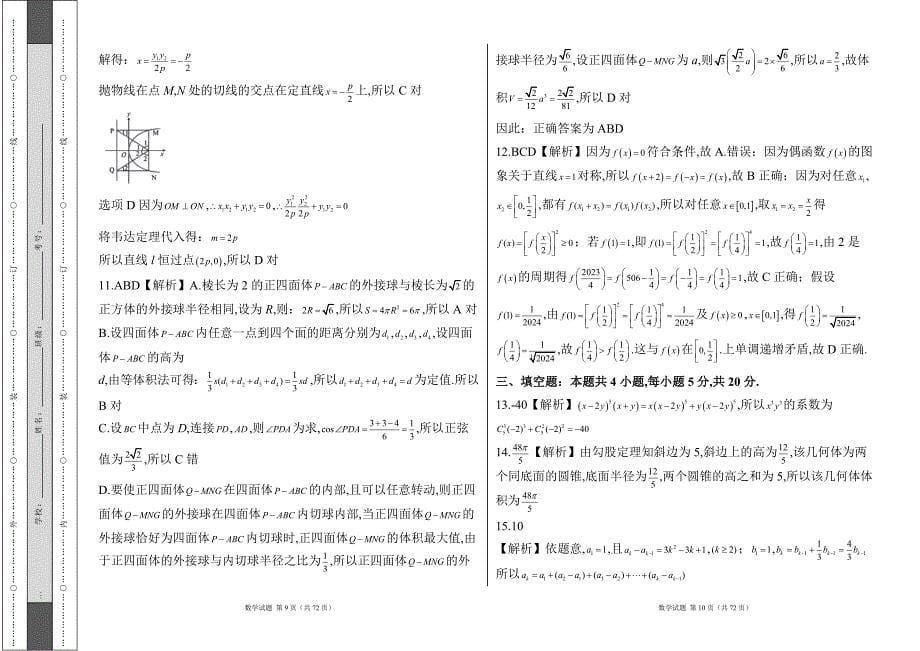 解得：x=y₁y₂/2p=-p/2
抛物线在点 M,N 处的切线的交点在定直线 x=-p/2 上,所以 C 对
选项 D 因为 OM⊥ON,∴x₁x₂+y₁y₂=0,∴y₁²/2p y₂²/2p+y₁y₂=0
将韦达定理代入得：m=2p
所以直线 l 恒过点(2p,0),所以 D 对
11.ABD【解析】A.棱长为 2 的正四面体 P-ABC 的外接球与棱长为√2的
正方体的外接球半径相同,设为 R,则：2R=√6,所以 S=4πR²=6π,所以 A 对
B.设四面体 P-ABC 内任意一点到四个面的距离分别为 d₁,d₂,d₃,d₄,设四面
体 P-ABC 的高为
d,由等体积法可得：1/3s(d₁+d₂+d₃+d₄)=1/3sd,所以 d₁+d₂+d₃+d₄=d 为定值.所以
B 对
C.设 BC 中点为 D,连接 PD,AD,则∠PDA 为求,cos∠PDA=3+3-4/6=1/3,所以正弦
值为2√2/3,所以 C 错
D.要使正四面体 Q-MNG 在四面体 P-ABC 的内部,且可以任意转动,则正四
面体 Q-MNG 的外接球在四面体 P-ABC 内切球内部,当正四面体 Q-MNG 的
外接球恰好为四面体 P-ABC 内切球时,正四面体 Q-MNG 的体积最大值,由
于正四面体的外接球与内切球半径之比为1/3,所以正四面体 Q-MNG 的外
数学试题 第 9 页（共 72 页）
接球半径为√6/6,设正四面体 Q-MNG 为 a,则√3(√2/2 a)=2×√6/6,所以 a=2/3,故体
积 V=√2/12 a³=2√2/81,所以 D 对
因此：正确答案为 ABD
12.BCD【解析】因为 f(x)=0 符合条件,故 A.错误；因为偶函数 f(x)的图
象关于直线 x=1 对称,所以 f(x+2)=f(-x)=f(x),故 B 正确；因为对任意 x₁,
x₂∈[0,1/2],都有 f(x₁+x₂)=f(x₁)f(x₂),所以对任意 x∈[0,1],取 x₁=x₂=x/2得
f(x)=[f(x/2)]²≥0；若 f(1)=1,即 f(1)=[f(1/2)]²=[f(1/4)]⁴=1,故 f(1/4)=1,由 2 是
f(x)的周期得 f(2023/4)=f(506-1/4)=f(-1/4)=f(1/4)=1,故 C 正确；假设
f(1)=1/2024,由 f(1)=[f(1/2)]²=[f(1/4)]⁴=1/2024及 f(x)≥0,x∈[0,1],得 f(1/2)=1/√2024,
f(1/4)=1/⁴√2024,故 f(1/4)>f(1/2).这与 f(x)在[0,1/2].上单调递增矛盾,故 D 正确.
三、填空题：本题共 4 小题,每小题 5 分,共 20 分.
13.-40【解析】(x-2y)⁵(x+y)=x(x-2y)⁵+y(x-2y)⁵,所以 x³y³的系数为
C₅³(-2)³+C₅²(-2)²=-40
14.48π/5【解析】由勾股定理知斜边为 5,斜边上的高为12/5,该几何体为两
个同底面的圆锥,底面半径为12/5,两个圆锥的高之和为 5,所以该几何体体
积为48π/5
15.10
【解析】依题意,a₁=1,且 aₖ-aₖ₋₁=3k²-3k+1,(k≥2)；b₁=1,bₖ=bₖ₋₁+1/3bₖ₋₁=4/3bₖ₋₁
所以 aₖ=a₁+(a₂-a₁)+(a₃-a₂)+⋯+(aₖ-aₖ₋₁)
数学试题 第 10 页（共 72 页）
学校： 姓名： 班级： 考号：
外 装 订 线
内 装 订 线